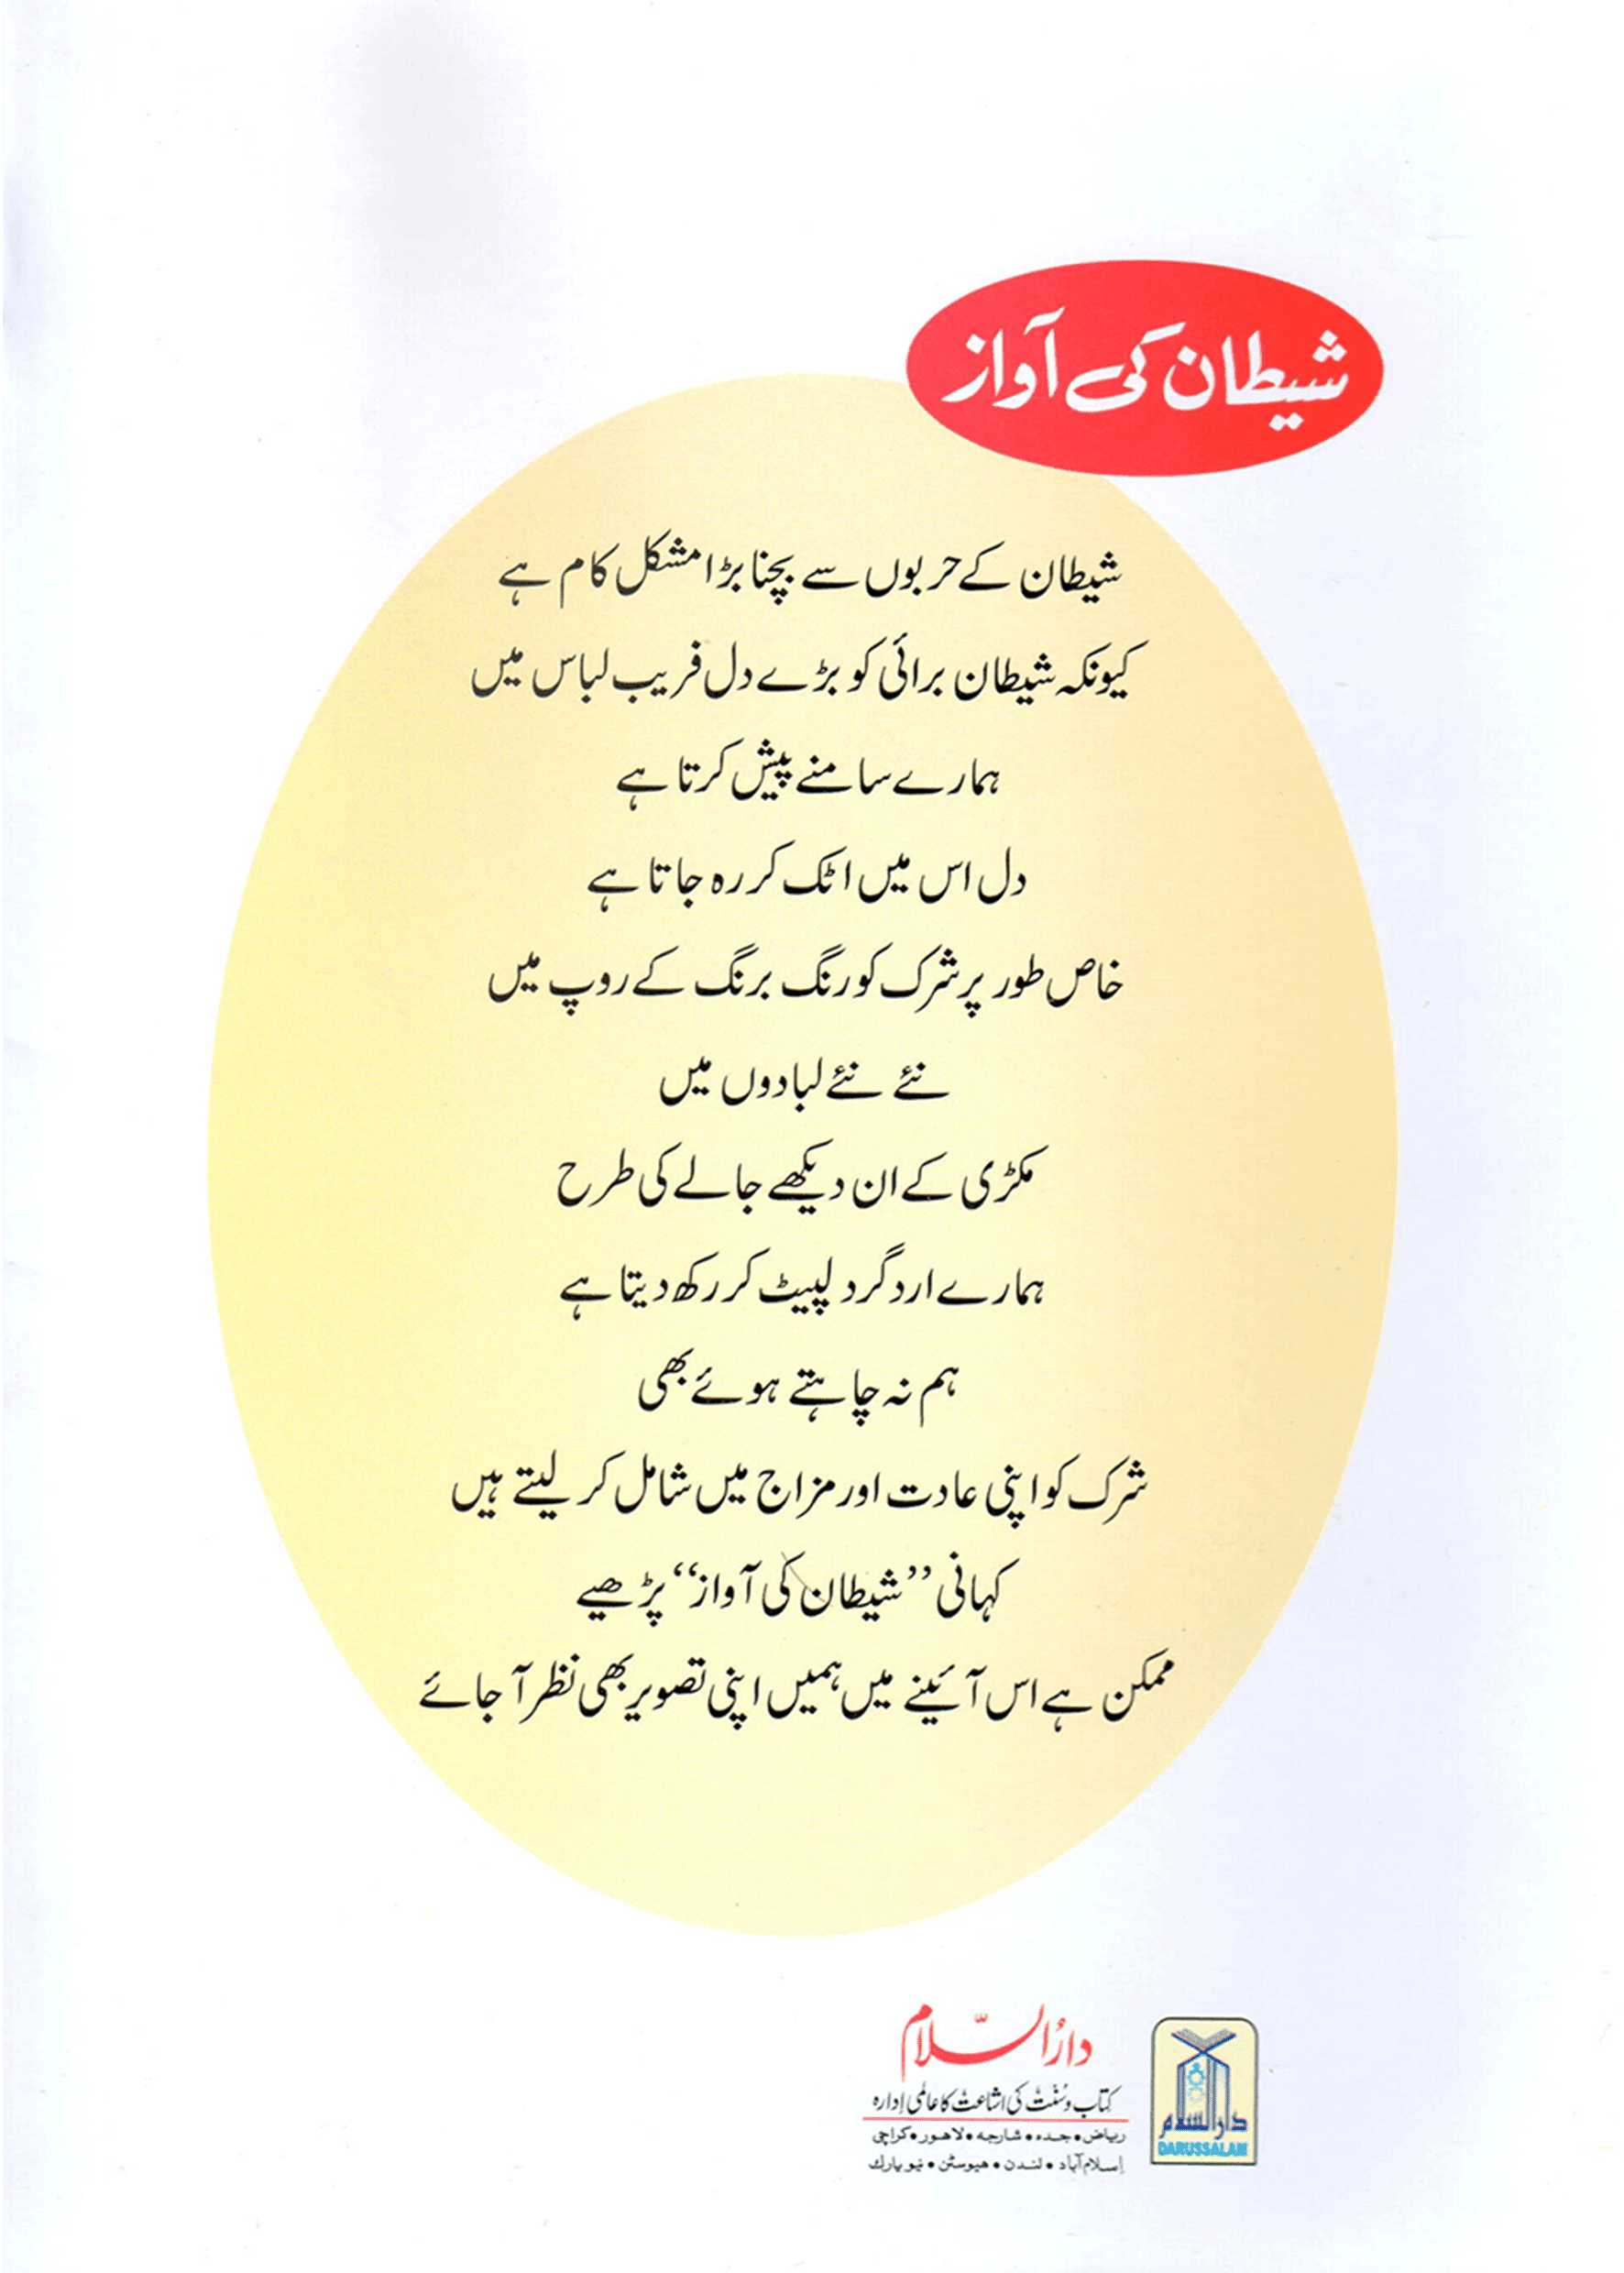 شیطان کی آواز
شیطان کے حربوں سے بچنا بڑا مشکل کام ہے
کیونکہ شیطان برائی کو بڑے دل فریب لباس میں
ہمارے سامنے پیش کرتا ہے
دل اس میں اٹک کر رہ جاتا ہے
خاص طور پر شرک کو رنگ برنگ کے روپ میں
نئے نئے لبادوں میں
مکڑی کے ان دیکھے جالے کی طرح
ہمارے ارد گرد لپیٹ کر رکھ دیتا ہے
ہم نہ چاہتے ہوئے بھی
شرک کو اپنی عادت اور مزاج میں شامل کر لیتے ہیں
کہانی ”شیطان کی آواز“ پڑھیے
ممکن ہے اس آئینے میں ہمیں اپنی تصویر بھی نظر آ جائے
دارُالسّلام
کتاب و سُنّت کی اشاعت کا عالمی اِدارہ
ریاض • جدہ • شارجہ • لاھور • کراچی
اِسلام آباد • لندن • ھیوسٹن • نیو یارک
دارالسلام
DARUSSALAM